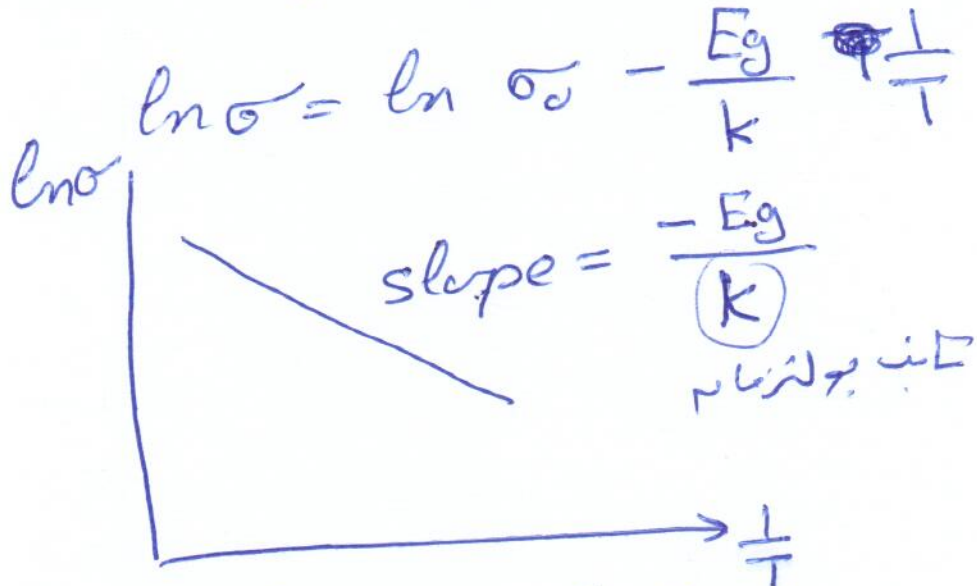 lnσ = ln σ₀ - Eg/k 1/T
lnσ
slope = -Eg/k
ثابت بولتزمان
1/T